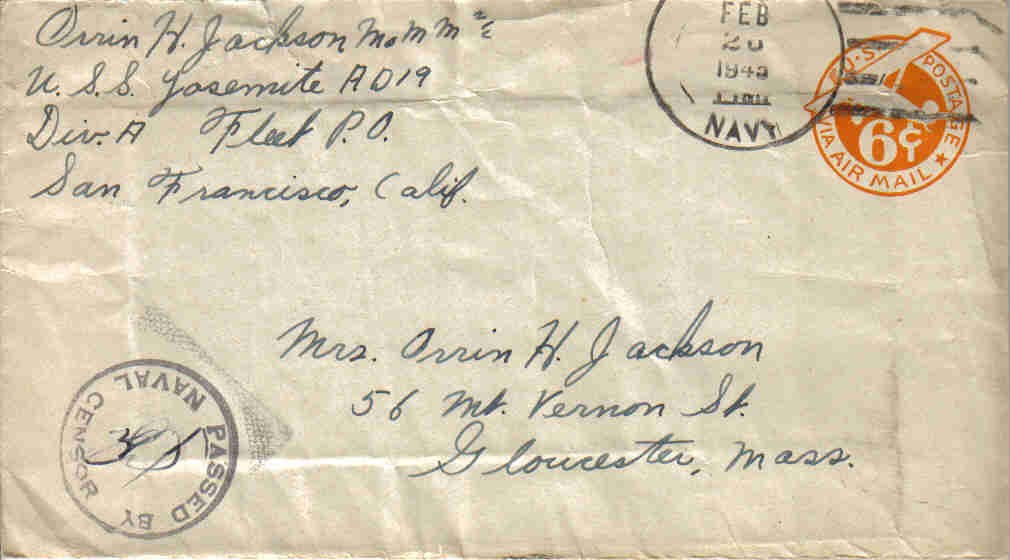 Orrin H. Jackson MoMM 2/c
U.S.S. Yosemite AD19
Div. A Fleet P.O.
San Francisco, Calif.
FEB
1945
NAVY
U.S. POSTAGE
6¢
VIA AIR MAIL
Mrs. Orrin H. Jackson
56 Mt. Vernon St.
Gloucester, Mass.
PASSED BY
NAVAL CENSOR